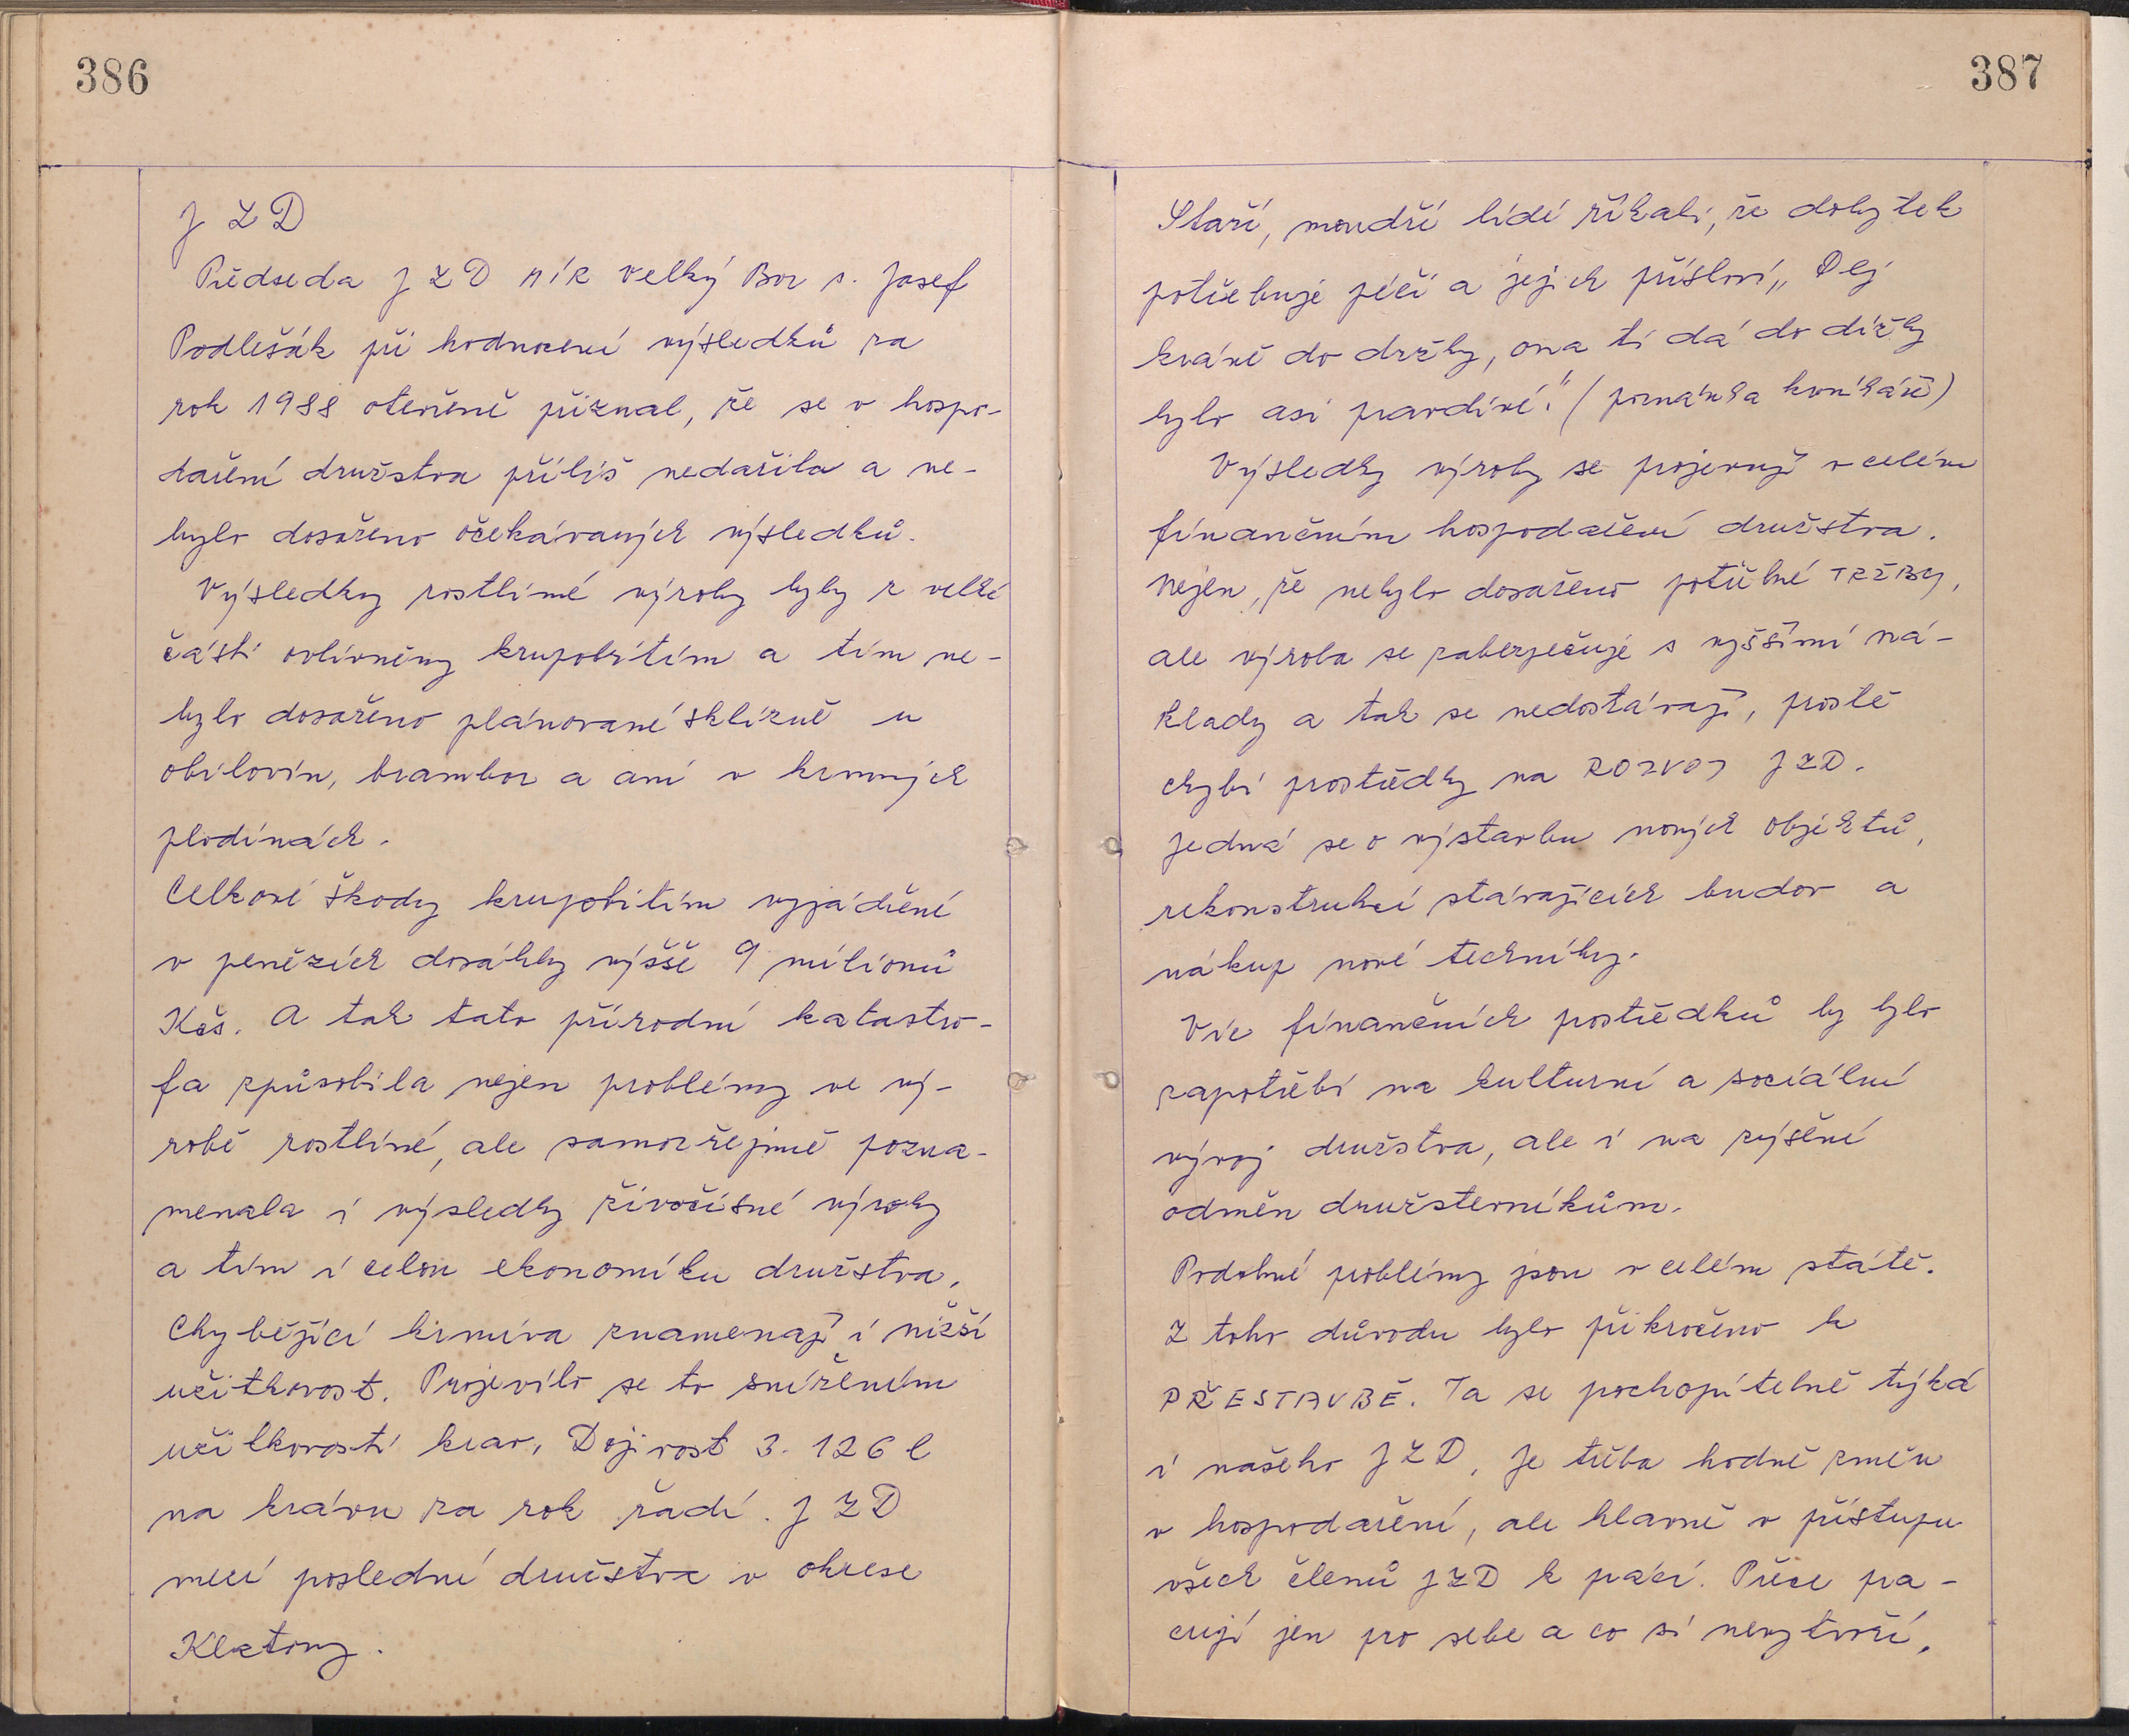 386
JZD
Předseda JZD MÍR Velký Bor s. Josef
Podlešák při hodnocení výsledků za
rok 1988 otevřeně přiznal, že se v hospo-
daření družstva příliš nedařilo a ne-
bylo dosaženo očekávaných výsledků.
Výsledky rostliné výroby byly z velké
části ovlivněny krupobitím a tím ne-
bylo dosaženo plánované sklizně u
obilovin, brambor a ani v krmných
plodinách.
Celkové škody krupobitím vyjádření
v penězích dosáhly výšše 9 milionů
Kčs. A tak tato přírodní katastro-
fa způsobila nejen problémy ve vý-
robě rostliné, ale samozřejmě pozna-
menala i výsledky živočišné výroby
a tím i celou ekonomiku družstva.
Chybějící krmiva znamenají i nižší
užitkovost. Projevilo se to snížením
užitkovosti krav. Dojivost 3.126 l
na krávu za rok řadí JZD
mezi poslední družstva v okrese
Klatovy.
387
Staří, moudří lidé říkali, že dobytek
potřebuje péči a jejich přísloví „Dej
krávě do držky, ona ti dá do dížky
bylo asi pravdivé." (poznámka kronikáře)
Výsledky výroby se projevují v celém
finančním hospodaření družstva.
Nejen, že nebylo dosaženo potřebné TRŽBY,
ale výroba se zabezpečuje s vyššími ná-
klady a tak se nedostávají, prostě
chybí prostředky na ROZVOJ JZD.
Jedná se o výstavbu nových objektů,
rekonstrukci stávajících budov a
nákup nové techniky.
Víc finančních postředků by bylo
zapotřebí na kulturní a sociální
vývoj družstva, ale i na zvýšení
odměn družsterníkům.
Podobné problémy jsou v celém státě.
Z toho důvodu bylo přikročeno k
PŘESTAVBĚ. Ta se pochopitelně týká
i našeho JZD. Je třeba hodně změn
v hospodaření, ale hlavně v přístupu
všech členů JZD k práci. Přece pra-
cují jen pro sebe a co si nevytvoří,